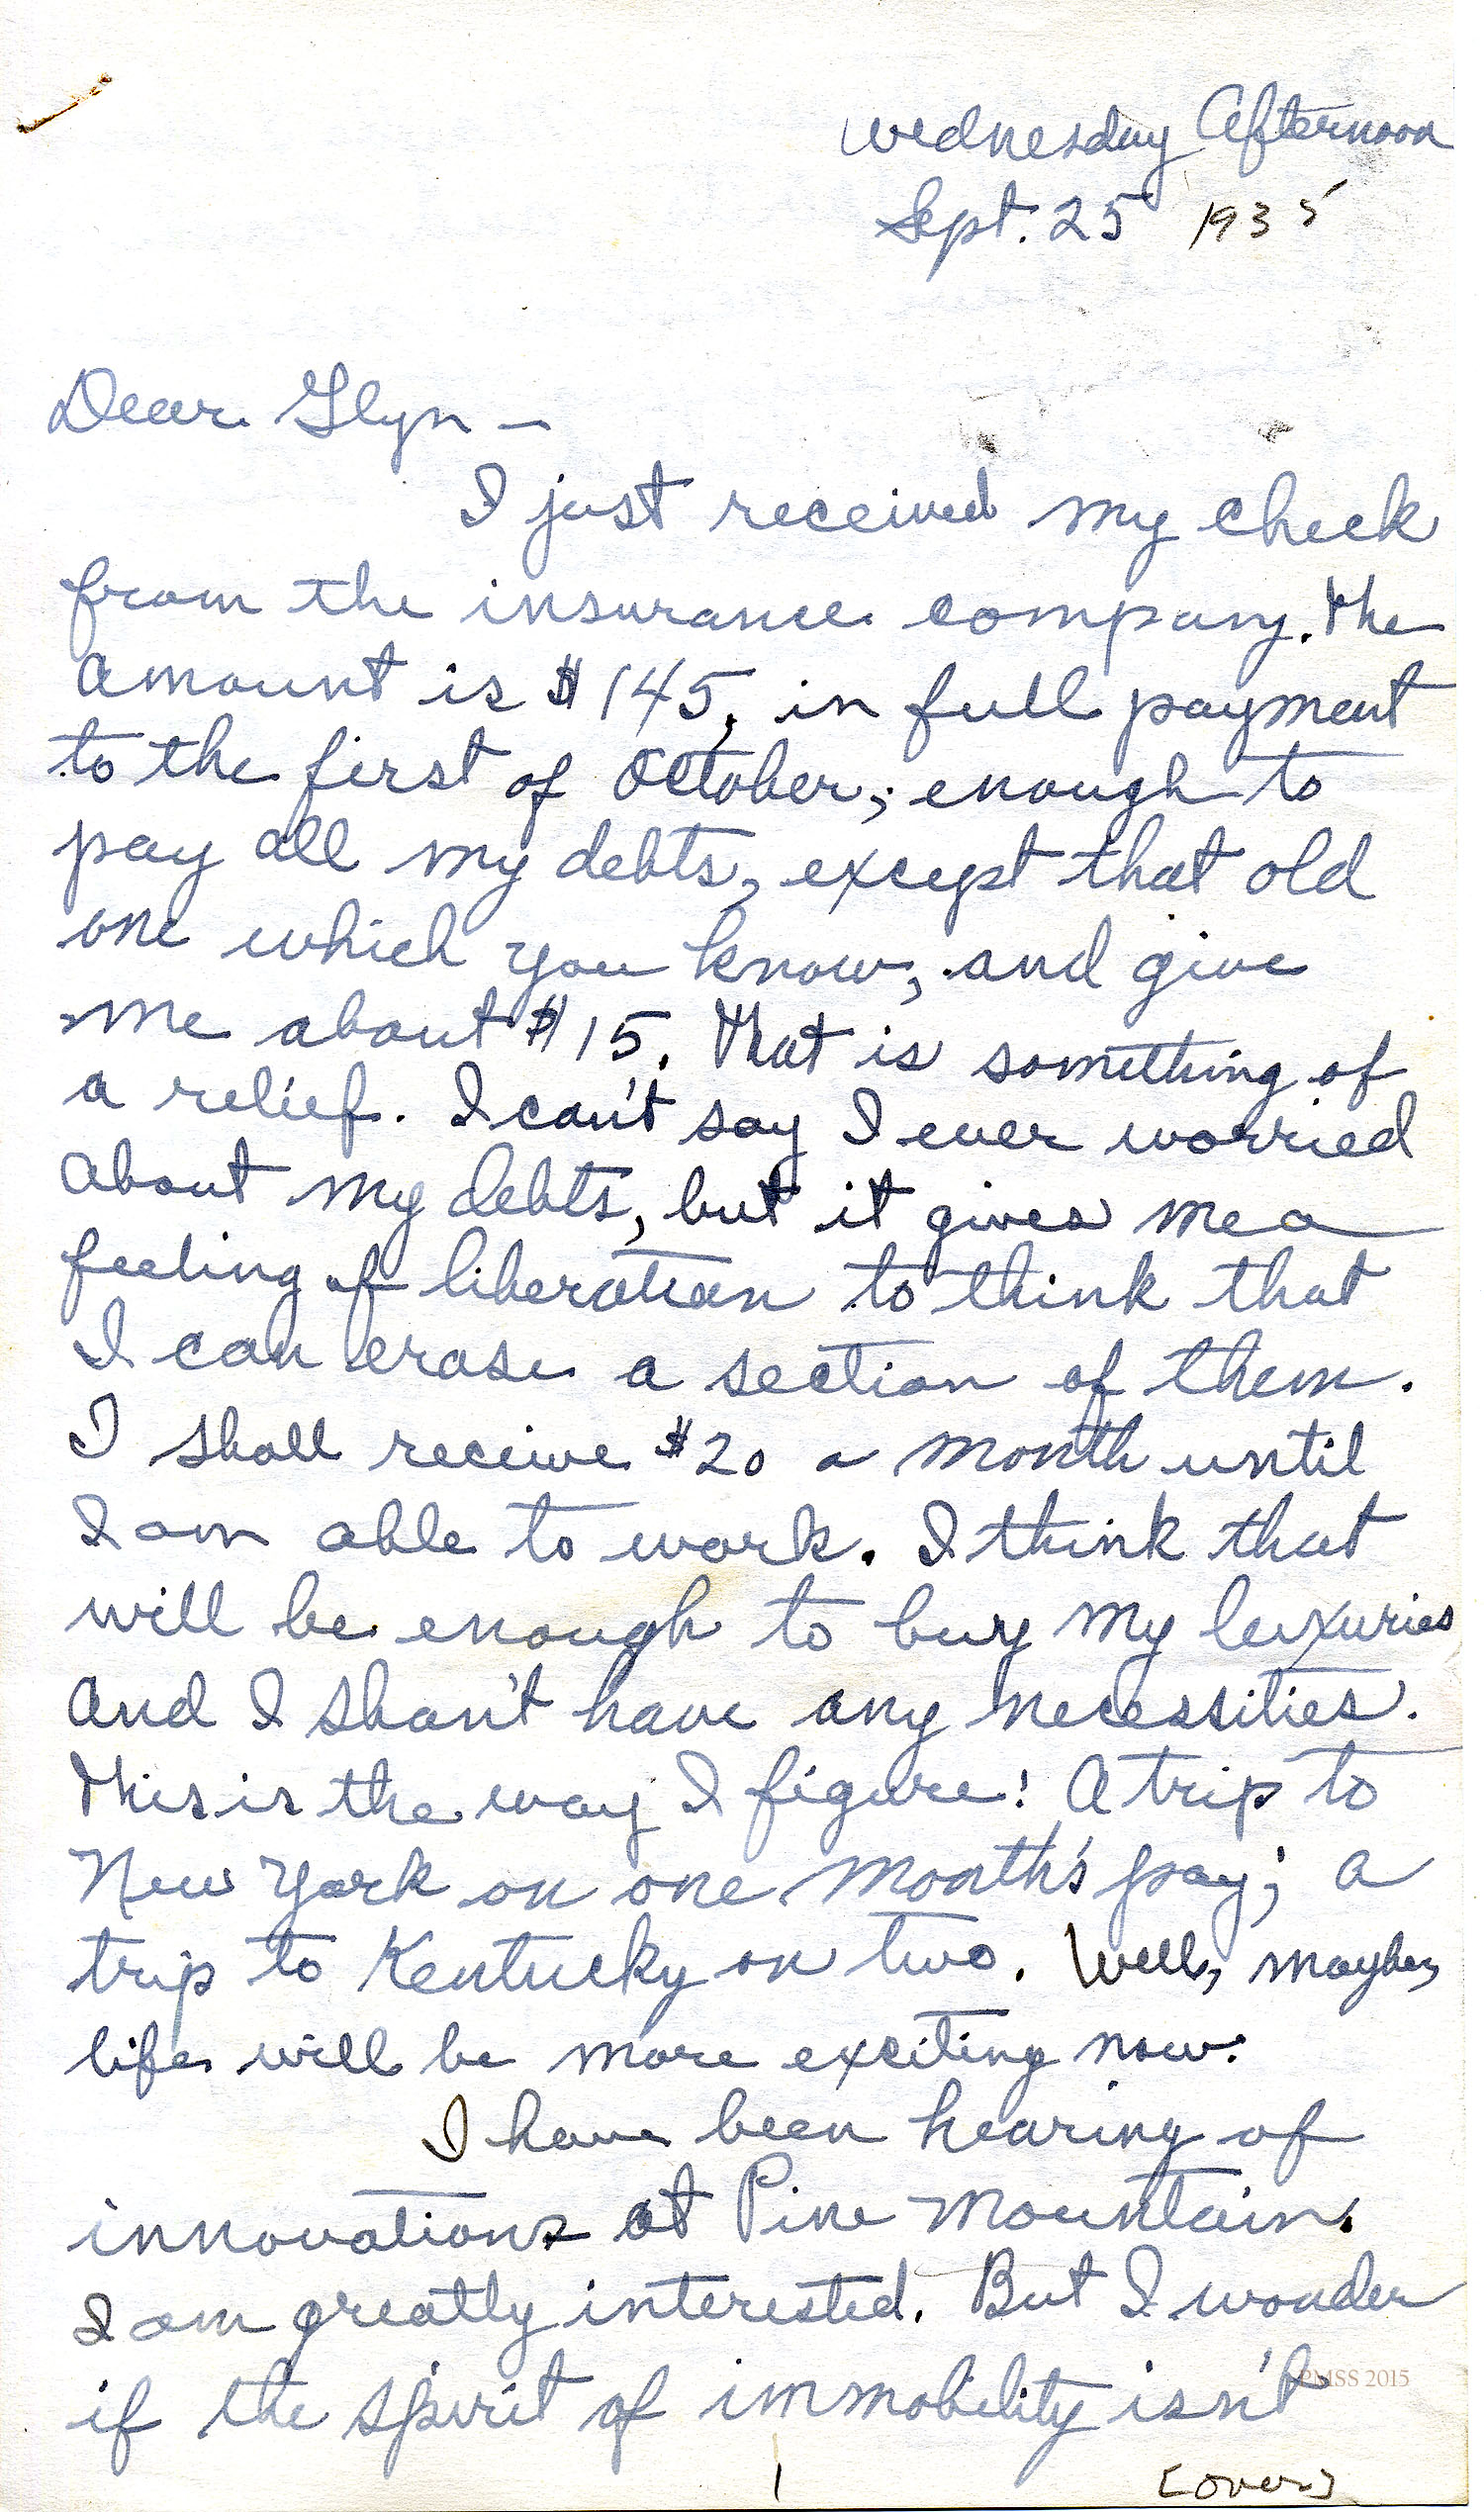 Wednesday Afternoon
Sept. 25 1935
Dear Glyn —
I just received my check
from the insurance company. The
amount is $145, in full payment
to the first of October; enough to
pay all my debts, except that old
one which you know, and give
me about $15. That is something of
a relief. I can't say I ever worried
about my debts, but it gives me a
feeling of liberation to think that
I can erase a section of them.
I shall receive $20 a month until
I am able to work. I think that
will be enough to buy my luxuries
and I shan't have any necessities.
This is the way I figure: A trip to
New York on one month's pay; a
trip to Kentucky on two. Well, maybe,
life will be more exciting now.
I have been hearing of
innovations at Pine Mountain.
I am greatly interested. But I wonder
if the spirit of immobility isn't
PMSS 2015
1
[over]